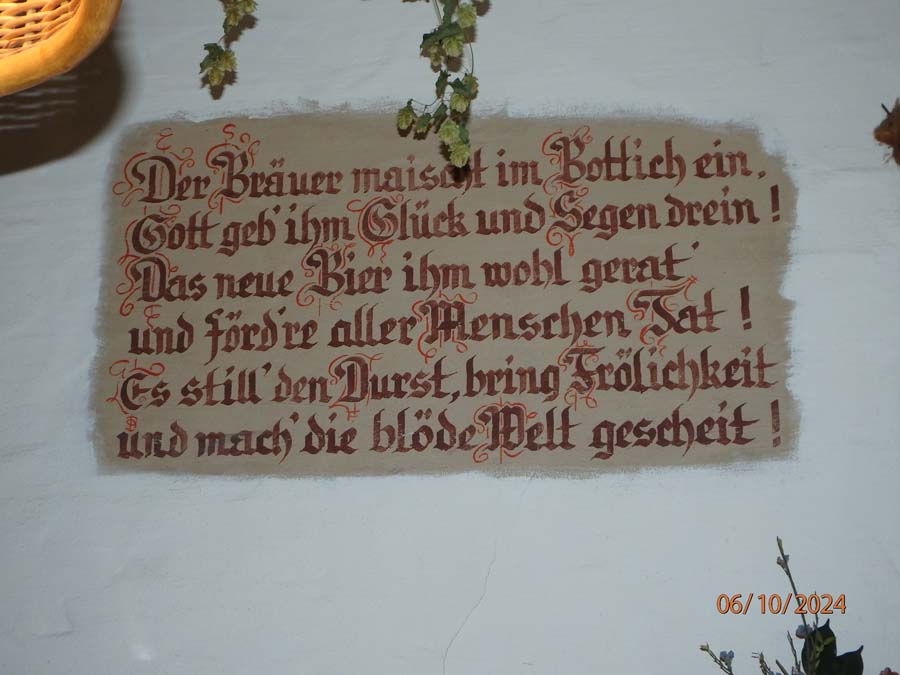 Der Bräuer maischt im Bottich ein,
Gott geb' ihm Glück und Segen drein!
Das neue Bier ihm wohl gerat'
und förd're aller Menschen Tat!
Es still' den Durst, bring Frölichkeit
und mach' die blöde Welt gescheit!
06/10/2024